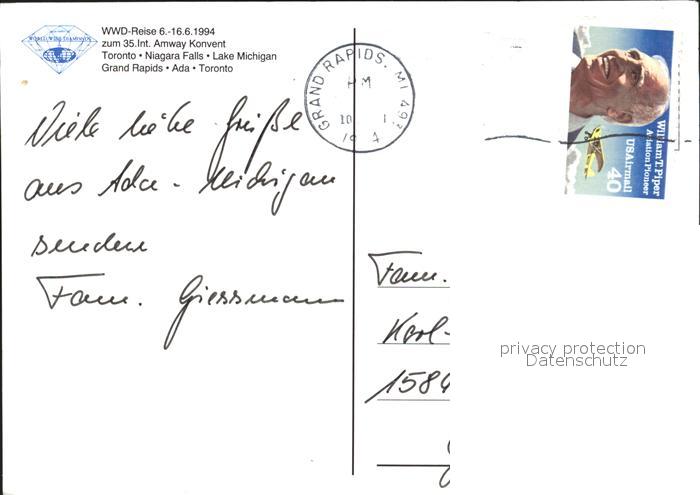 WORLD WIDE DIAMONDS
WWD-Reise 6.-16.6.1994
zum 35.Int. Amway Konvent
Toronto • Niagara Falls • Lake Michigan
Grand Rapids • Ada • Toronto
GRAND RAPIDS, MI 493
PM
10
19 4
William T. Piper
Aviation Pioneer
USAirmail
40
Viele liebe Grüße
aus Ada - Michigan
senden
Fam. Giessmann
Fam.
Karl-
1584
privacy protection
Datenschutz